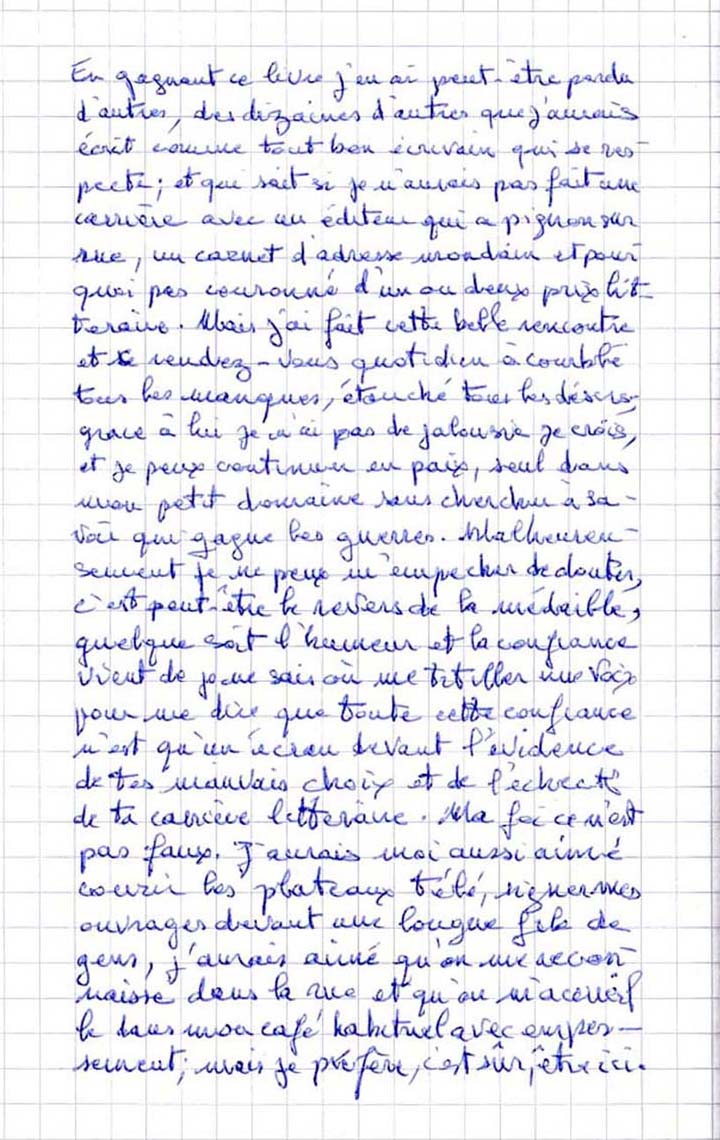 En gagnant ce livre j'en ai peut-être perdu
d'autres, des dizaines d'autres que j'aurais
écrit comme tout bon écrivain qui se res-
pecte; et qui sait si je n'aurais pas fait une
carrière avec un éditeur qui a pignon sur
rue, un carnet d'adresse mondain et pour
quoi pas couronné d'un ou deux prix lit-
teraire. Mais j'ai fait cette belle rencontre
et ce rendez-vous quotidien à comblé
tous les manques, étanché tous les désirs,
grace à lui je n'ai pas de jalousie je crois,
et je peux continuer en paix, seul dans
mon petit domaine sans chercher à sa-
voir qui gagne les guerres. Malheureu-
sement je ne peux m'empecher de douter,
c'est peut-être le revers de la médaille,
quelque soit l'humeur et la confiance
vient de je ne sais où me titiller une voix
pour me dire que toute cette confiance
n'est qu'un écran devant l'évidence
de tes mauvais choix et de l'échec
de ta carrière littéraire. Ma foi ce n'est
pas faux. J'aurais moi aussi aimé
courir les plateaux télé, signer mes
ouvrages devant une longue file de
gens, j'aurais aimé qu'on me recon
naisse dans la rue et qu'on m'accueil
le dans mon café habituel avec empres-
sement; mais je préfère, c'est sûr, être ici.